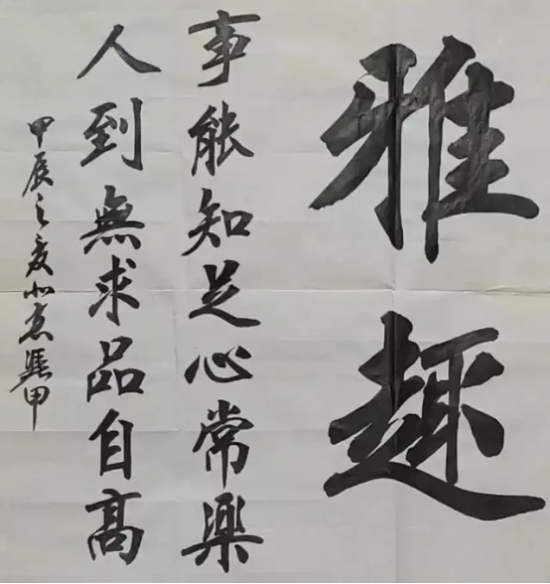 雅趣
事能知足心常樂
人到無求品自高
甲辰之夏北京